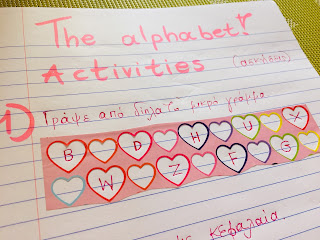 The alphabet!
Activities
1) Γράψε από δίπλα το μικρό γράμμα
B D H U X
W Z F G
κεφαλαία.